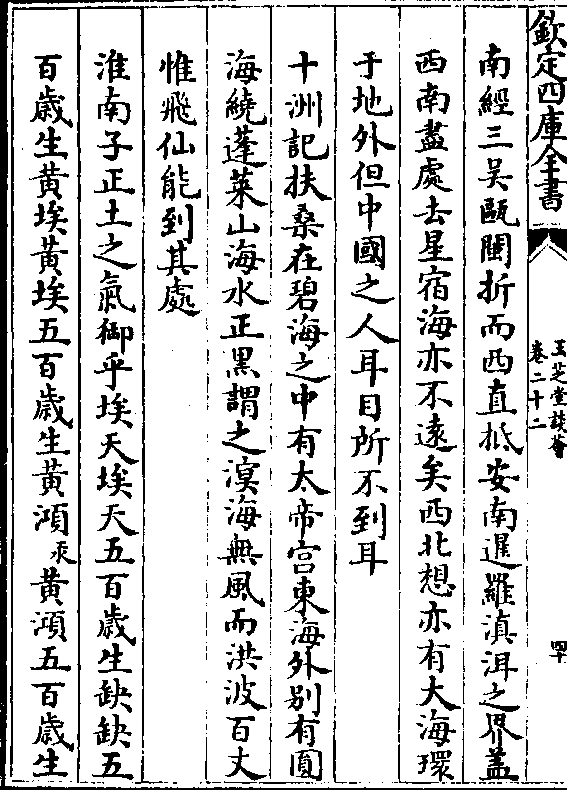 欽定四庫全書
玉芝堂談薈
卷二十二
四十
南經三吳甌閩折而西直抵安南暹羅滇洱之界蓋
西南盡處去星宿海亦不遠矣西北想亦有大海環
于地外但中國之人耳目所不到耳
十洲記扶桑在碧海之中有太帝宫東海外别有圎
海繞蓬萊山海水正黑謂之溟海無風而洪波百丈
惟飛仙能到其處
淮南子正土之氣御乎埃天埃天五百歳生缺缺五
百歳生黄埃黄埃五百歳生黄澒汞黄澒五百歳生